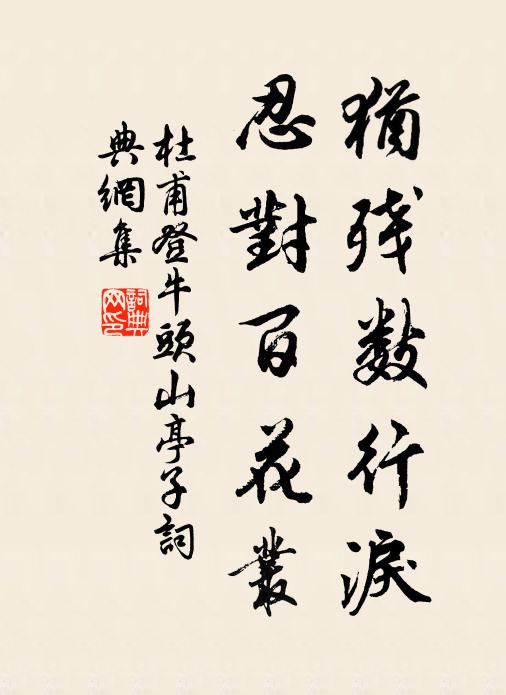 猶残数行淚
忍對百花叢
杜甫登牛頭山亭子詞
典網集
詞典
网印